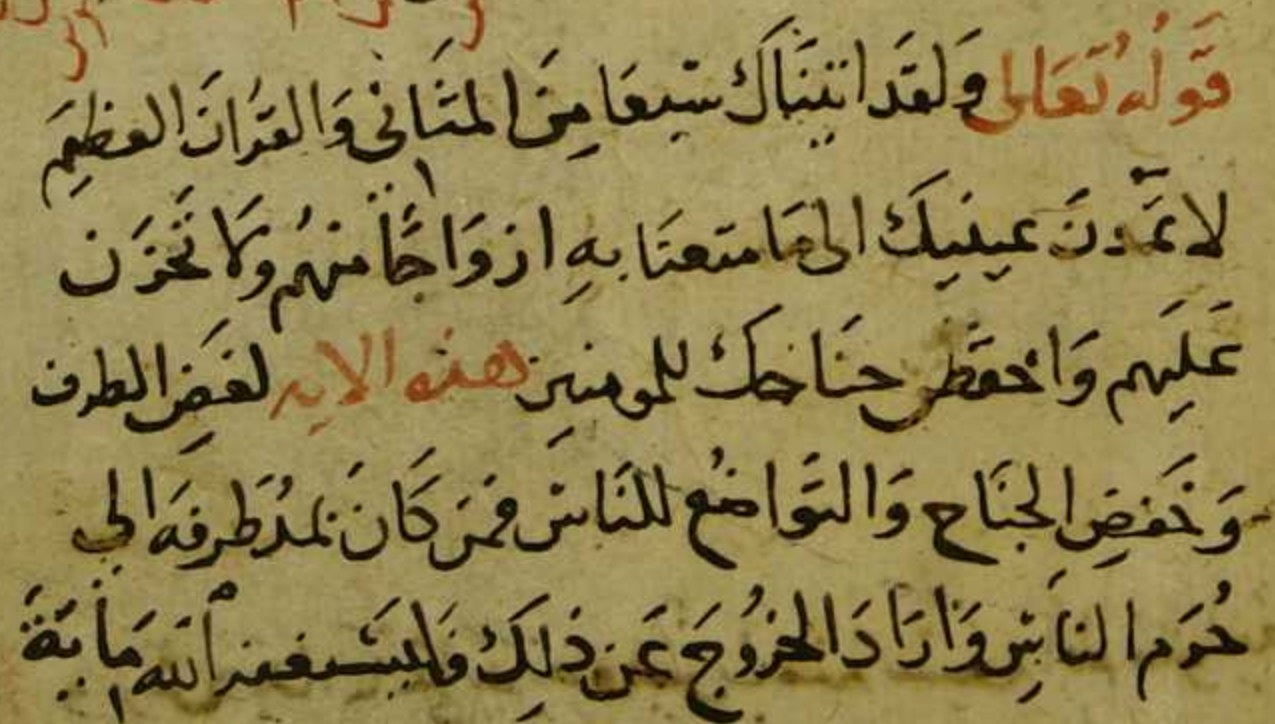 قَوْلُهُ تَعَالى وَلَقَد اتينَاكَ سَبعَا مِنَ المثَاني وَالقرُانَ العَظِيَم
لا تمدّنَ عَينيكَ الى مَا متعنَا بهِ ازوَاجًا منهُم وَلا تَحزَن
عَلَيهم وَاخفظ جنَاحك للمومنِين هذه الايه لغضِ الطرف
وَخَفضِ الجنَاح وَالتوَاضُع للنَاس فمَن كَانَ يمدُ طَرفَه الي
حُرَم الناسِ وَارَادَ الخرُوجَ عَن ذلِكَ فَليَستغفر الله مَايَةَ